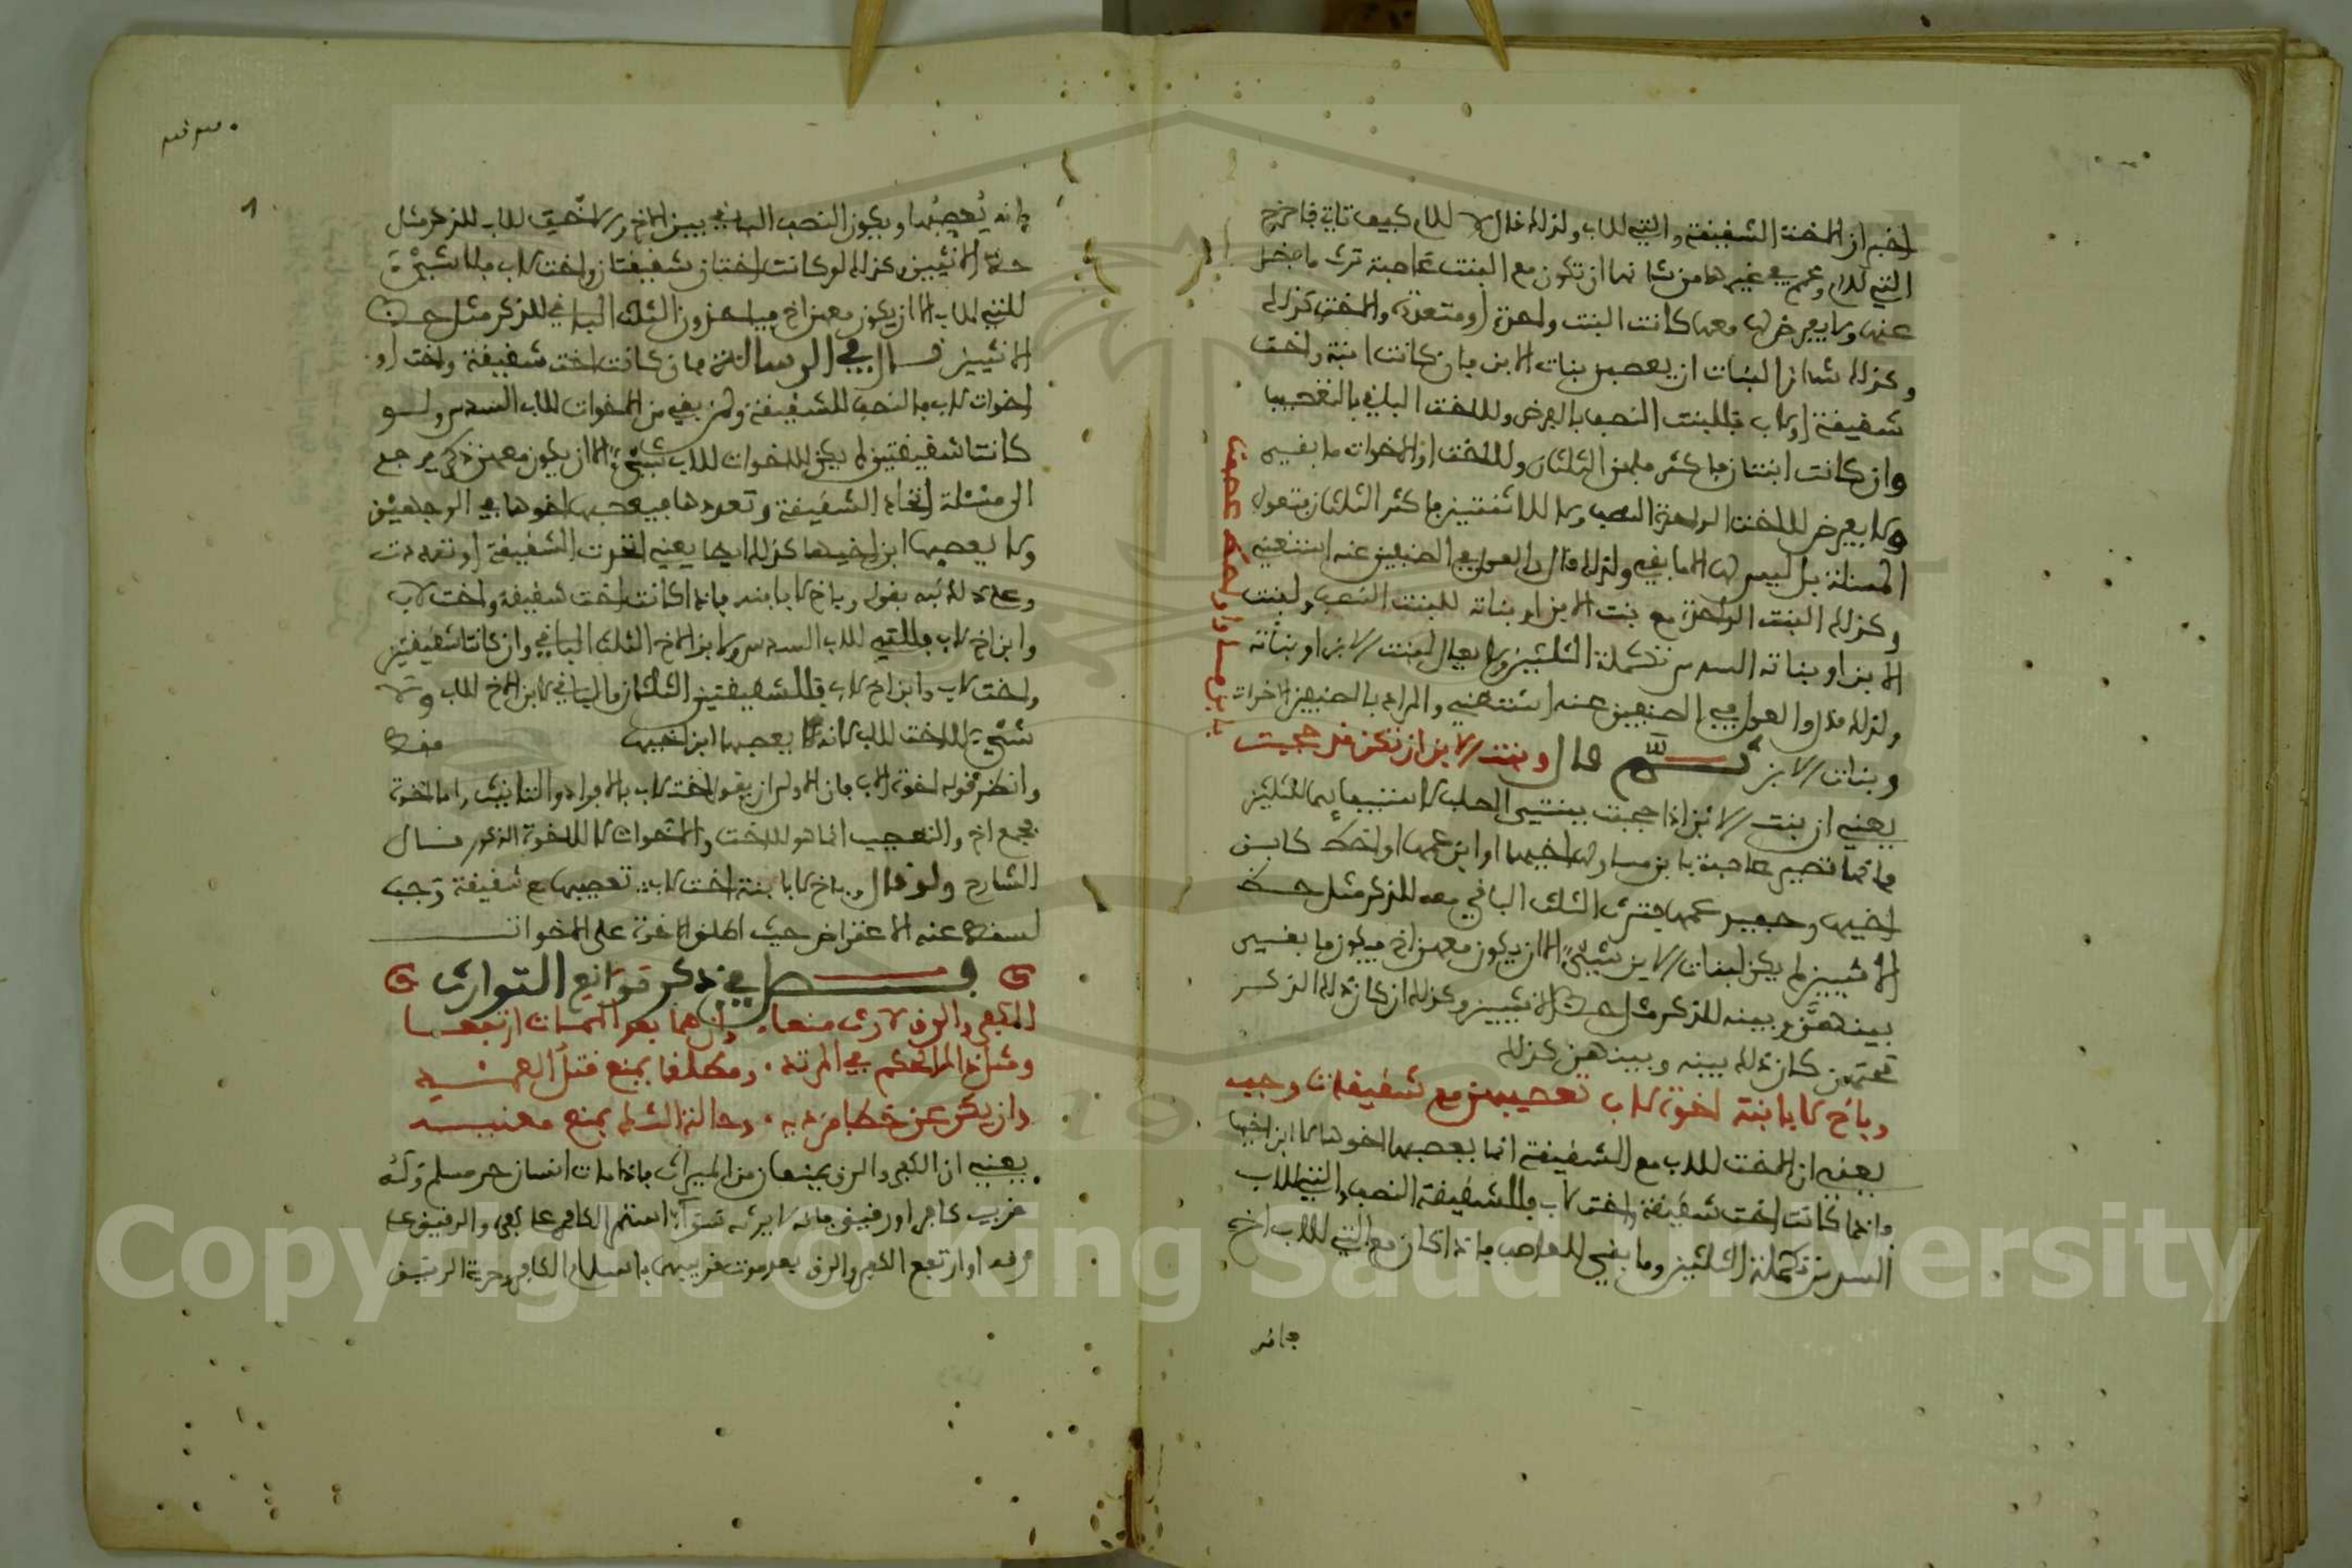 اخبر ان الاخت الشقيقة والتي للاب ولذلك قال لا للام كيف تاتي فاخرج
التي للام وعم في غيرهما من شانها ان تكون مع البنت عاصبة ترث ما فضل
عنها ولا يفرض لها معها كانت البنت واحدة او متعددة والاخت كذلك
وكذلك شان البنات ان يعصبن بنات الابن فان كانت ابنة واخت
شقيقة او لاب فللبنت النصف بالفرض وللاخت الباقي بالتعصيب
وان كانت ابنتان فاكثر فلهن الثلثان وللاخت او الاخوات ما بقي
ولا يفرض للاخت الواحدة النصف ولا للاثنتين فاكثر الثلثان فتعول
المسئلة بل ليس لها الا ما بقي ولذلك قال والعول في الصنفين عنه استغني
وكذلك البنت الواحدة مع بنت الابن او بناته للبنت النصف ولبنت
الابن او بناته السدس تكملة الثلثين ولا يعال لبنت الابن او بناته
ولذلك قال والعول في الصنفين عنه استغني والمراد بالصنفين الاخوات
وبنات الابن ثم قال وبنت الابن ان تكن قد حجبت
بابن مساو او احط عصبت
يعني ان بنت الابن اذا حجبت ببنتي الصلب لاستيفائهما للثلثين
فانما تصير عاصبة بابن مساو لها اخيها او ابن عمها او احط كابن
اخيها وحفيد عمها فترث الثلث الباقي معه للذكر مثل حظ
الانثيين لم يكن لبنات الابن شيء الا ان يكون معهن اخ فيكون ما بقي
بينهن وبينه للذكر مثل حظ الانثيين وكذلك ان كان ذلك الذكر
تحتهن كان ذلك بينه وبينهن كذلك
وباخ لا بابنه اخوة لاب تعصيبهن مع شقيقات وجب
يعني ان الاخت للاب مع الشقيقة انما يعصبها اخوها لا ابن اخيها
واذا كانت اخت شقيقة واخت لاب فللشقيقة النصف والتي للاب
السدس تكملة الثلثين وما بقي للعاصب فاذا كان مع التي للاب اخ
فانه
فانه يعصبها ويكون النصف الباقي بين الاخ والاخت للاب للذكر مثل
حظ الانثيين وكذلك لو كانت اختان شقيقتان واخت لاب فلا شيء
للتي للاب الا ان يكون معهن اخ فياخذون الثلث الباقي للذكر مثل حظ
الانثيين قال في الرسالة فان كانت اخت شقيقة واخت او
اخوات لاب فالنصف للشقيقة ولمن بقي من الاخوات للاب السدس ولو
كانتا شقيقتين لم يكن للاخوات للاب شيء الا ان يكون معهن ذكر يرجع
الى مسئلة اتحاد الشقيقة وتعددها فيعصبها اخوها في الوجهين
ولا يعصبها ابن اخيها كذلك ايضا يعني اتحدت الشقيقة او تعددت
وعلى ذلك نبه بقوله وباخ لا بابنه فاذا كانت اخت شقيقة واخت لاب
وابن اخ لاب فللتي للاب السدس ولابن الاخ الثلث الباقي وان كانتا شقيقتين
واخت لاب وابن اخ لاب فللشقيقتين الثلثان والباقي لابن الاخ للاب ولا
شيء للاخت للاب لانه لا يعصبها ابن اخيها
وانظر قوله اخوة لاب فان الاولى ان يقول اخت لاب بالافراد والتانيث واما اخوة
فجمع اخ والتعصيب انما هو للاخت والاخوات لا للاخوة الذكور قال
الشارح ولو قال وباخ لا بابنه اخت لاب تعصيبها مع شقيقة وجب
لسقط عنه الاعتراض حيث اطلق الاخوة على الاخوات
فصل في ذكر موانع التوارث
الكفر والرق لارث منعا وان هما بعد الممات ارتفعا
ومثل ذا الحكم في المرتد ومطلقا يمنع قتل العمد
وان يكن عن خطا فمن ديه وحالة الشك بمنع مغنيه
يعني ان الكفر والرق يمنعان من الميراث فاذا مات انسان حر مسلم وله
قريب كافر او رقيق فانه لا يرثه سواء استمر الكافر على كفره والرقيق على
رقه او ارتفع الكفر والرق بعد موت قريبهما باسلام الكافر وحرية الرقيق